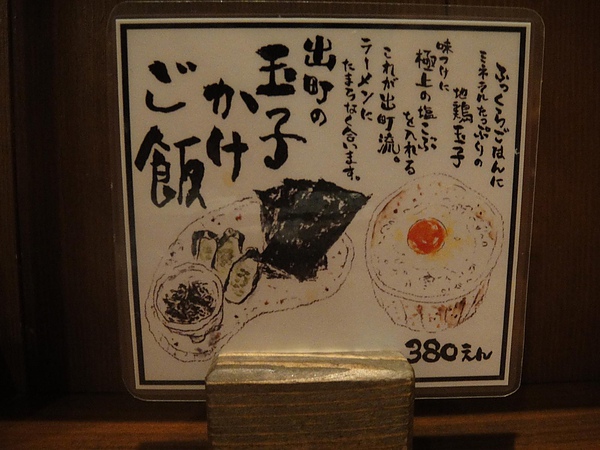 ふっくらごはんに
ミネラルたっぷりの
地鶏玉子
味つけに
極上の塩こぶ
を入れる
これが出町流。
ラーメンに
たまらなく合います。
出町の
玉子
かけ
ご飯
380えん